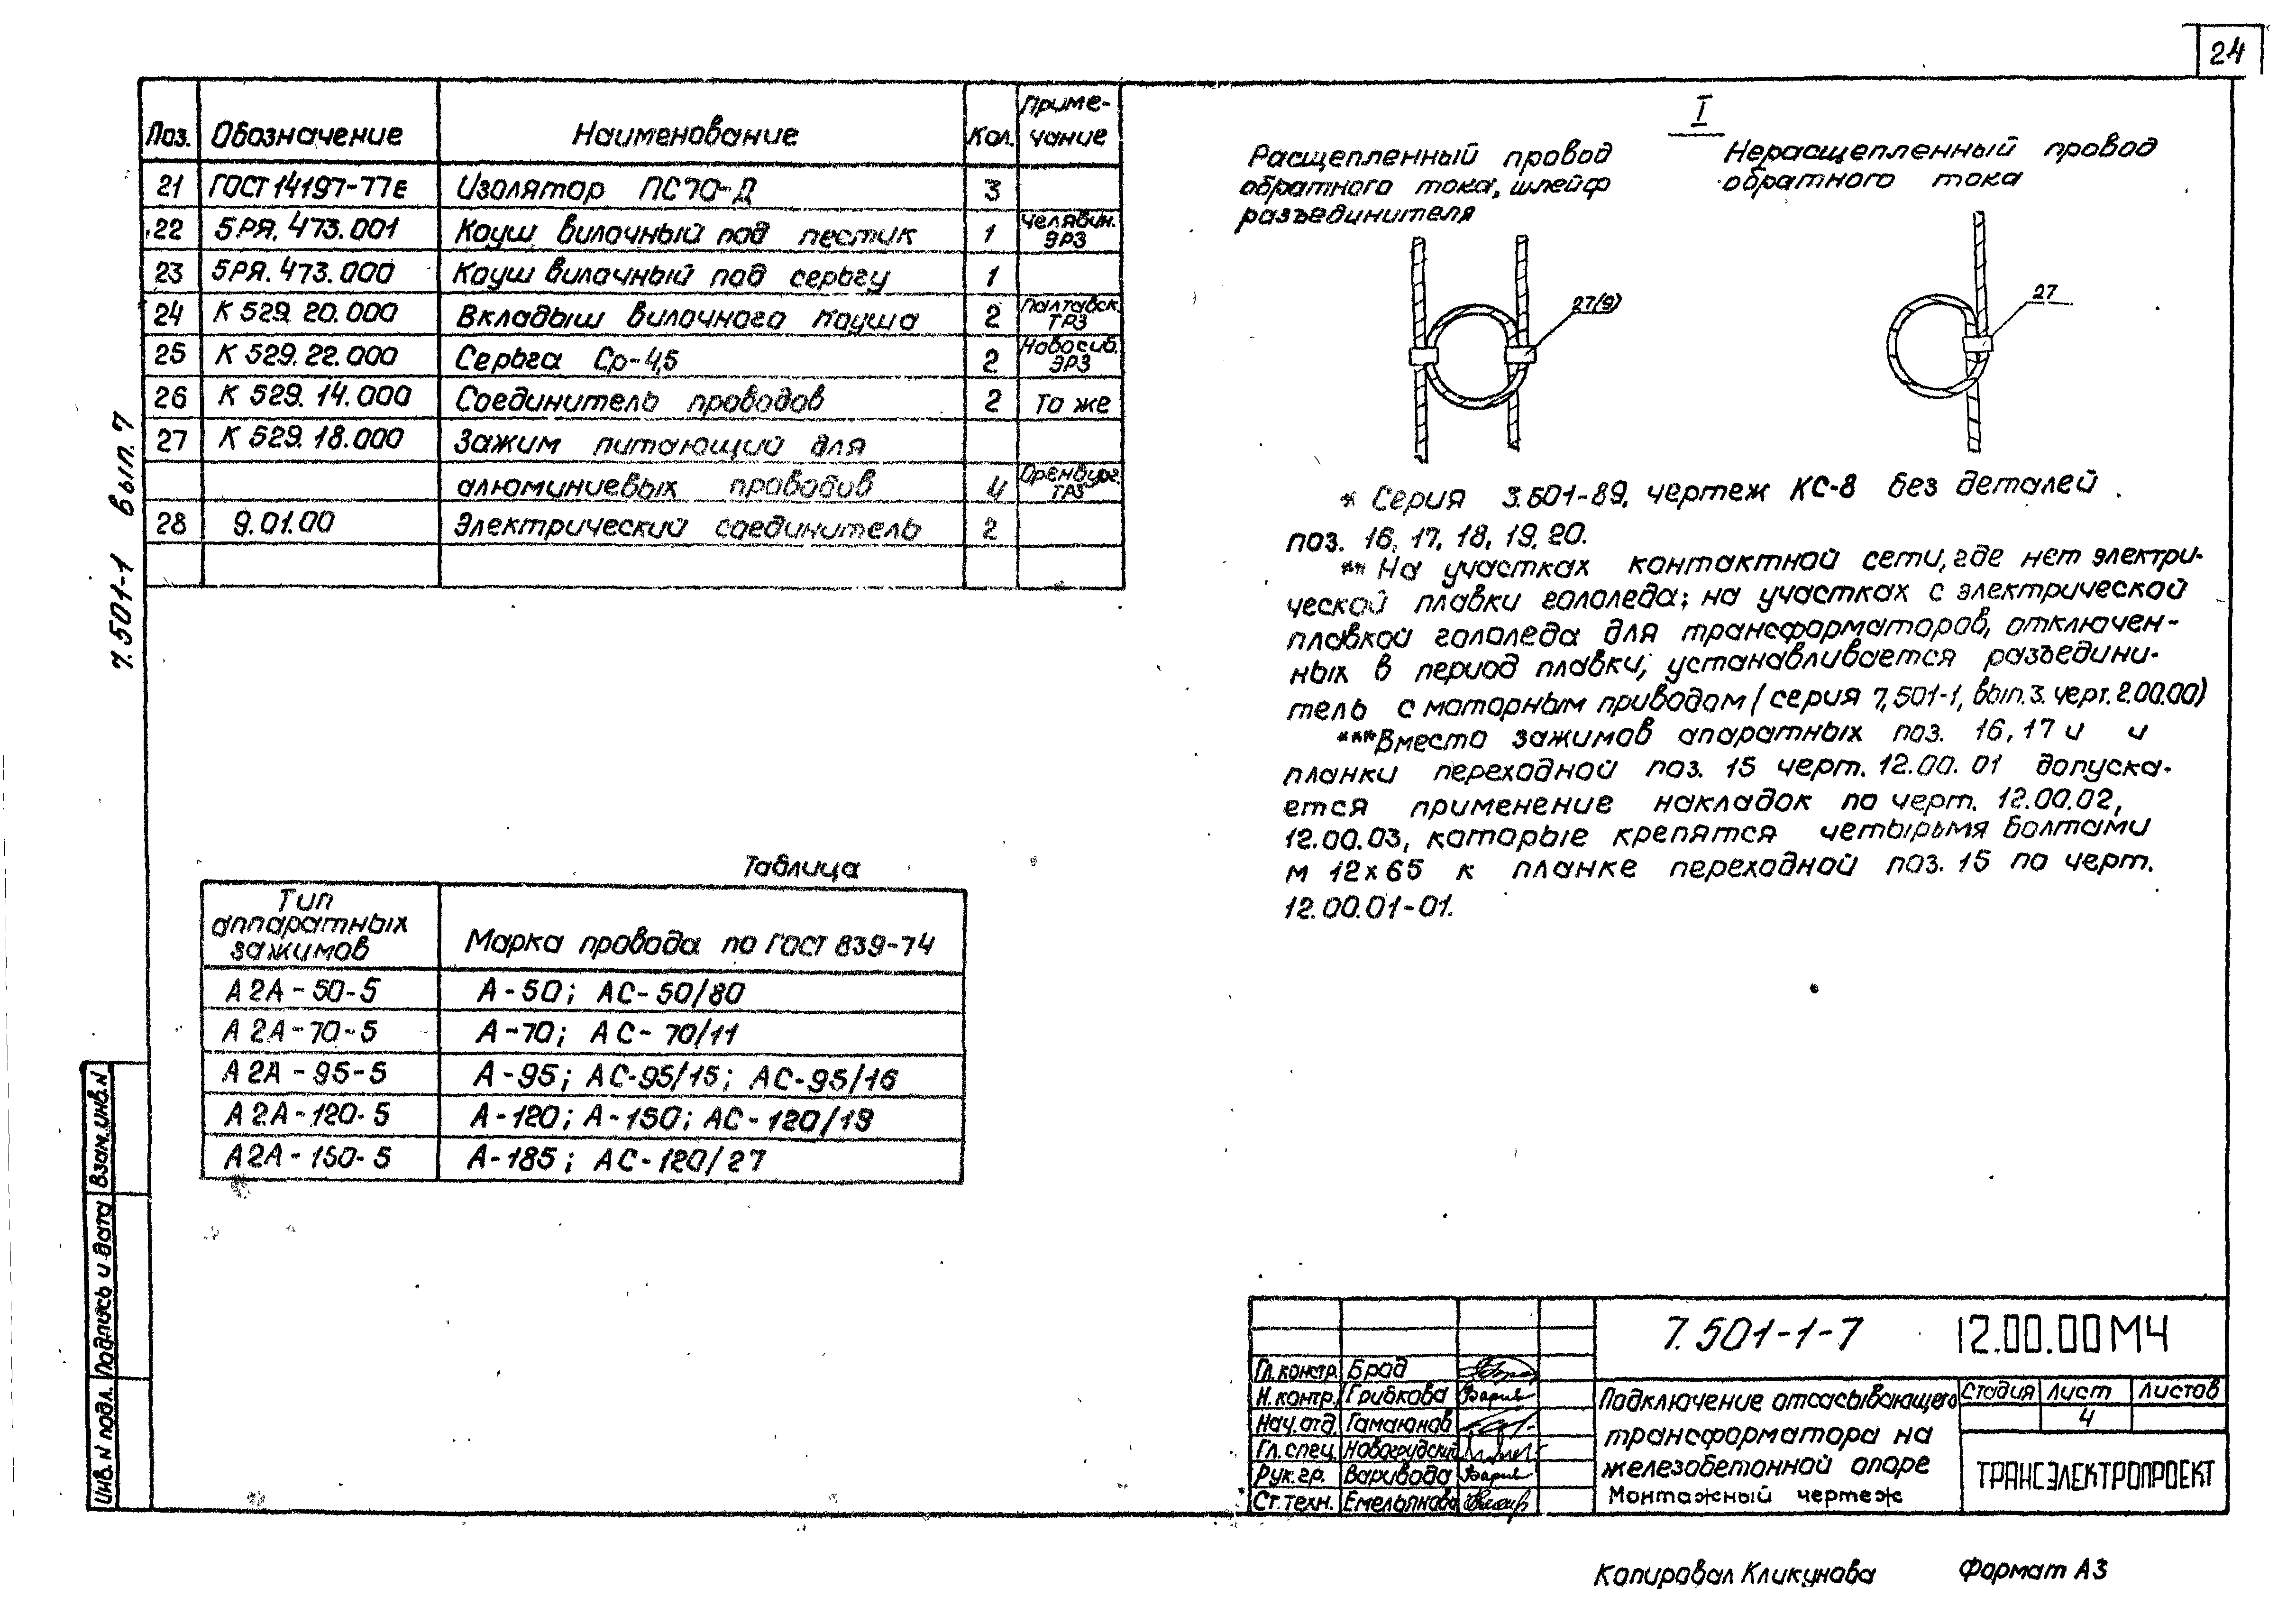 24
Поз. Обозначение Наименование Кол. Приме-
чание
21 ГОСТ 14197-77Е Изолятор ПС70-Д 3
22 5РЯ.473.001 Коуш вилочный под пестик 1 Челябин. ЭРЗ
23 5РЯ.473.000 Коуш вилочный под серьгу 1
24 К 529.20.000 Вкладыш вилочного коуша 2 Полтавск. ТРЗ
25 К 529.22.000 Серьга Ср-4,5 2 Новосиб. ЭРЗ
26 К 529.14.000 Соединитель проводов 2 То же
27 К 529.18.000 Зажим питающий для
алюминиевых проводов 4 Оренбург. ТРЗ
28 9.01.00 Электрический соединитель 2
7.501-1 вып. 7
Таблица
Тип
аппаратных
зажимов
Марка провода по ГОСТ 839-74
А2А-50-5 А-50; АС-50/80
А2А-70-5 А-70; АС-70/11
А2А-95-5 А-95; АС-95/15; АС-95/16
А2А-120-5 А-120; А-150; АС-120/19
А2А-150-5 А-185; АС-120/27
I
Расщепленный провод
обратного тока, шлейф
разъединителя
Нерасщепленный провод
обратного тока
27(9)
27
* Серия 3.501-89, чертеж КС-8 без деталей
поз. 16, 17, 18, 19, 20.
** На участках контактной сети, где нет электри-
ческой плавки гололеда; на участках с электрической
плавкой гололеда для трансформаторов, отключен-
ных в период плавки, устанавливается разъедини-
тель с моторным приводом (серия 7.501-1, вып.3. черт.2.00.00)
*** Вместо зажимов апаратных поз. 16, 17 и и
планки переходной поз. 15 черт. 12.00.01 допуска-
ется применение накладок по черт. 12.00.02,
12.00.03, которые крепятся четырьмя болтами
м 12х65 к планке переходной поз. 15 по черт.
12.00.01-01.
Инв. N подл. Подпись и дата Взам. инв. N
7.501-1-7 12.00.00МЧ
Гл. констр. Брод
Н. контр. Грибкова
Нач. отд. Гамаюнов
Гл. спец. Новогрудский
Рук. гр. Варивода
Ст. техн. Емельянова
Подключение отсасывающего
трансформатора на
железобетонной опоре
Монтажный чертеж
Стадия Лист Листов
4
ТРАНСЭЛЕКТРОПРОЕКТ
Копировал Кликунова Формат А3